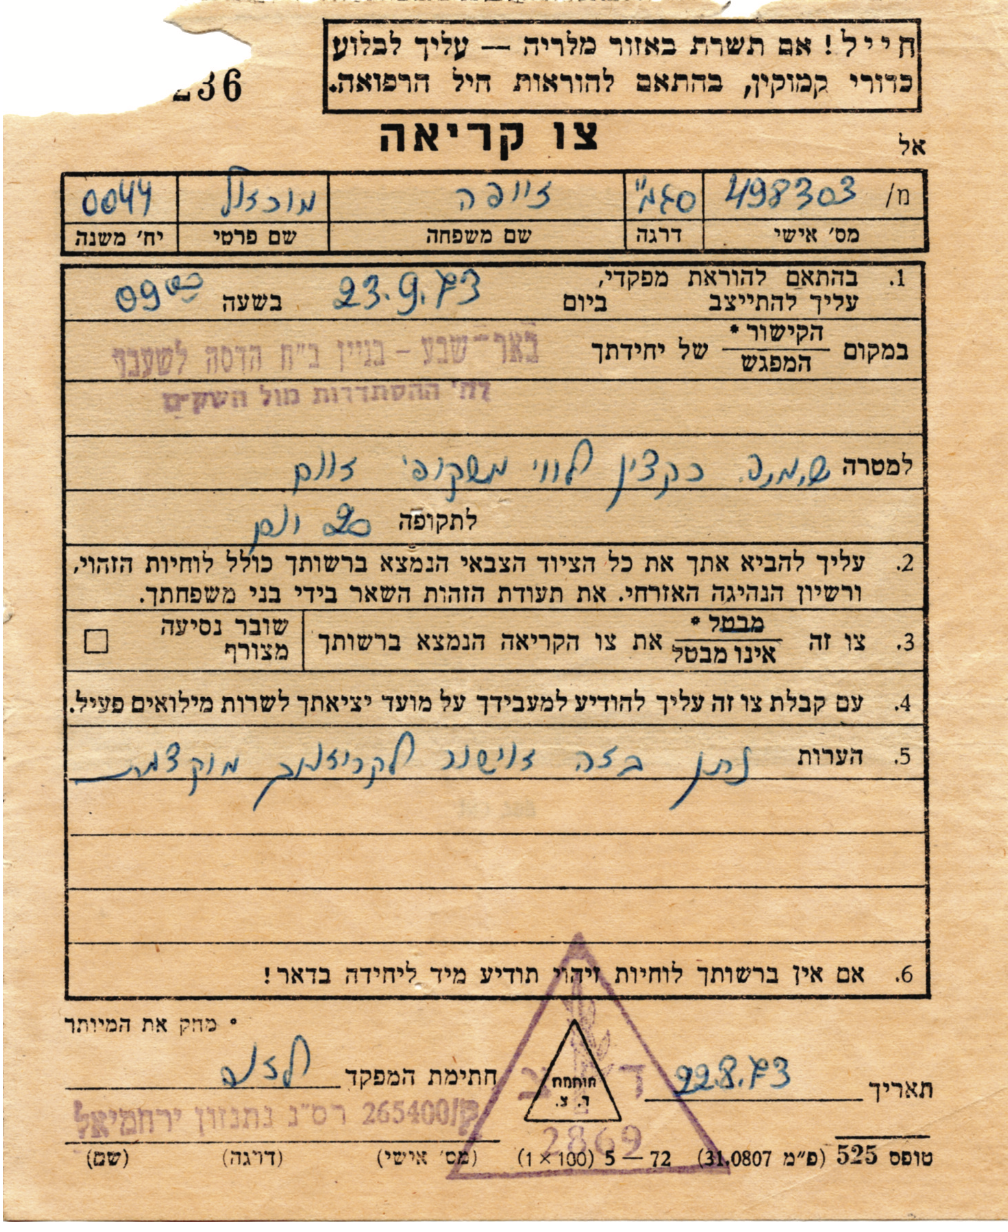 חייל! אם תשרת באזור מלריה — עליך לבלוע
כדורי קמוקין, בהתאם להוראות חיל הרפואה.
236
צו קריאה
אל
מ/ 498303 סגמ"
0044
מס' אישי דרגה שם משפחה שם פרטי יח' משנה
1. בהתאם להוראת מפקדי,
עליך להתייצב ביום 23.9.73 בשעה 09
במקום הקישור * המפגש של יחידתך
באר-שבע - בניין ב"ח הדסה לשעבר
רח' ההסתדרות מול השק"ם
למטרה ש.מ.פ. כקצין לווי משקופי
לתקופה 20 יום
2. עליך להביא אתך את כל הציוד הצבאי הנמצא ברשותך כולל לוחיות הזהוי,
ורשיון הנהיגה האזרחי. את תעודת הזהות השאר בידי בני משפחתך.
3. צו זה מבטל * אינו מבטל את צו הקריאה הנמצא ברשותך
שובר נסיעה
מצורף
4. עם קבלת צו זה עליך להודיע למעבידך על מועד יציאתך לשרות מילואים פעיל.
5. הערות נתן בזה אישור לקריאתך מוקדמת
6. אם אין ברשותך לוחיות זיהוי תודיע מיד ליחידה בדאר!
* מחק את המיותר
תאריך 22.8.73 חתימת המפקד
חותמת
ד. צ.
ד צ
2869
265400/מ רס"נ נתנזון ירחמיאל
טופס 525 (פ"מ 31.0807) 72 — 5 (100 × 1) (מס' אישי) (דרגה) (שם)